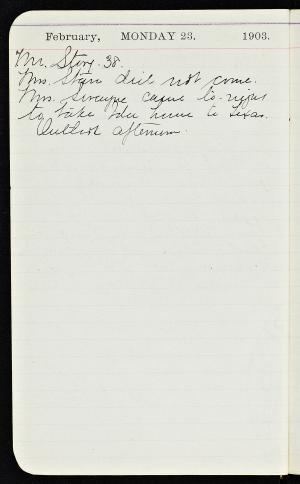 February, MONDAY 23. 1903.
Mr. Story. 38.
Mrs. Starr did not come.
Mrs. came to-night
to take home to Texas.
afternoon.